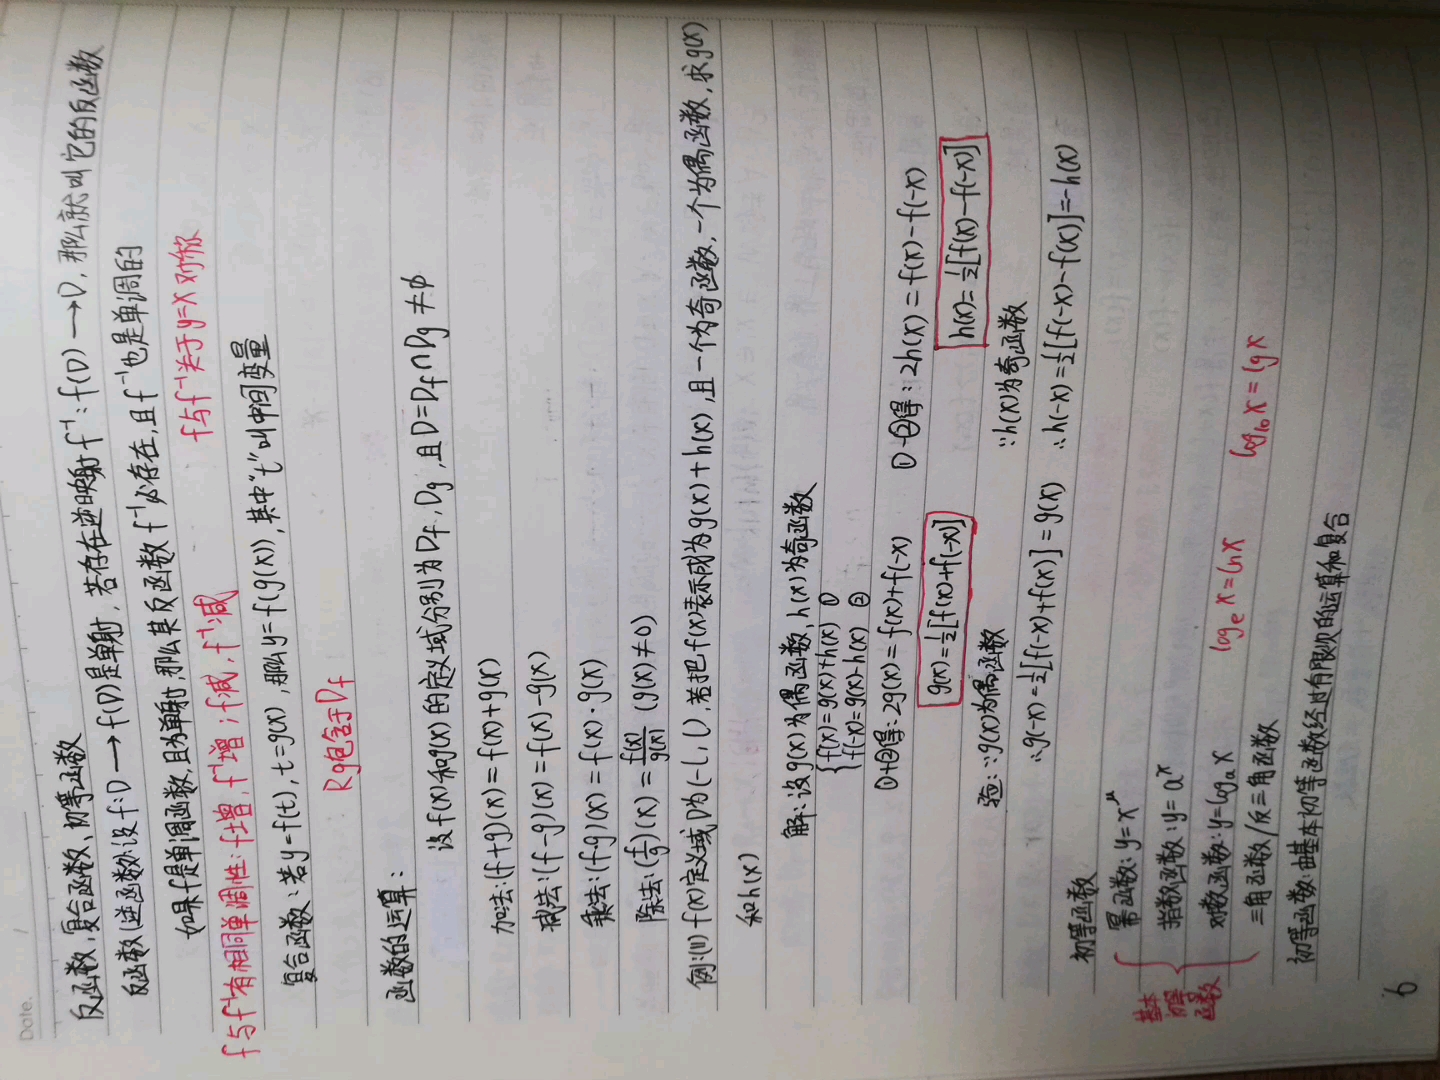 Date.
反函数,复合函数、初等函数
反函数(逆函数):设f:D→f(D)是单射,若存在逆映射f⁻¹:f(D)→D,那么就叫它的反函数
如果f是单调函数,且为单射,那么其反函数f⁻¹必存在,且f⁻¹也是单调的
f与f⁻¹有相同单调性:f增,f⁻¹增;f减,f⁻¹减 f与f⁻¹关于y=x对称
复合函数:若y=f(t),t=g(x),那么y=f(g(x)),其中"t"叫中间变量
Rg包含于Df
函数的运算:
设f(x)和g(x)的定义域分别为Df,Dg,且D=Df∩Dg≠φ
加法:(f+g)(x)=f(x)+g(x)
减法:(f-g)(x)=f(x)-g(x)
乘法:(f·g)(x)=f(x)·g(x)
除法:(f/g)(x)=f(x)/g(x) (g(x)≠0)
例:(11)f(x)定义域D为(-l,l),若把f(x)表示成为g(x)+h(x),且一个为奇函数,一个为偶函数,求g(x)
和h(x)
解:设g(x)为偶函数,h(x)为奇函数
{f(x)=g(x)+h(x) ①
f(-x)=g(x)-h(x) ②
①+②得:2g(x)=f(x)+f(-x) ①-②得:2h(x)=f(x)-f(-x)
g(x)=½[f(x)+f(-x)] h(x)=½[f(x)-f(-x)]
验:∵g(x)为偶函数 ∵h(x)为奇函数
∴g(-x)=½[f(-x)+f(x)]=g(x) ∴h(-x)=½[f(-x)-f(x)]=-h(x)
初等函数
基本初等函数
幂函数:y=x^μ
指数函数:y=a^x
对数函数:y=logₐx logₑx=lnx log₁₀x=lgx
三角函数/反三角函数
初等函数:由基本初等函数经过有限次的运算和复合
6